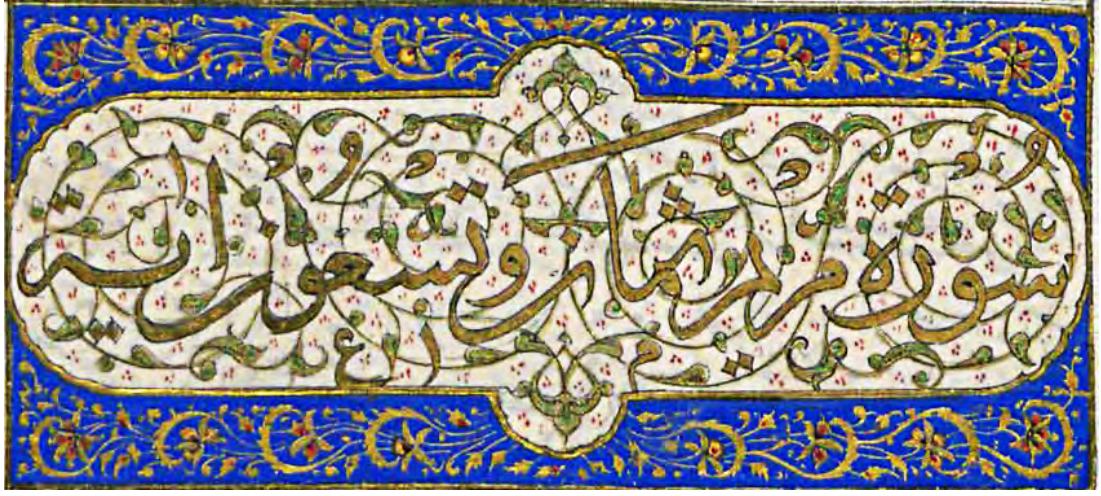 سورة مريم ثمان وتسعون اية